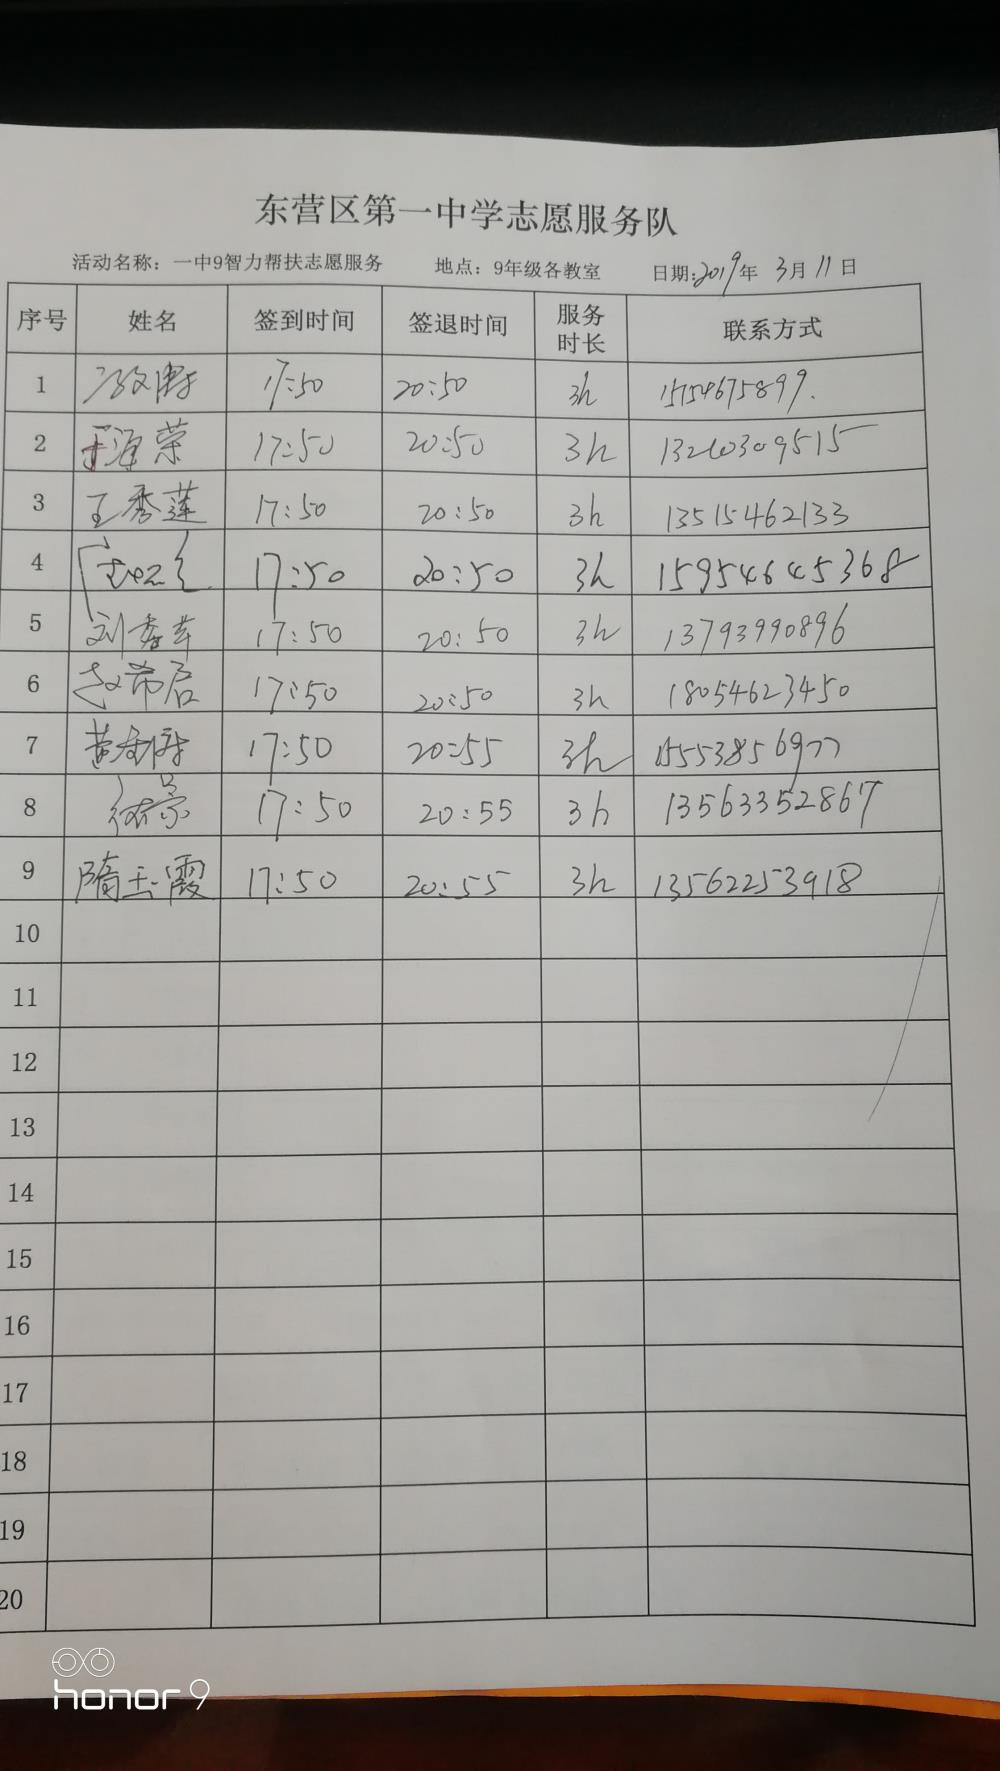 东营区第一中学志愿服务队
活动名称：一中9智力帮扶志愿服务 地点：9年级各教室 日期:2019年 3月11日
序号 姓名 签到时间 签退时间 服务时长 联系方式
1 17:50 20:50 3h 15154675899.
2 于海荣 17:50 20:50 3h 13210309515
3 王秀莲 17:50 20:50 3h 13515462133
4 17:50 20:50 3h 15954645368
5 17:50 20:50 3h 13793990896
6 赵希启 17:50 20:50 3h 18054623450
7 17:50 20:55 3h 15553856977
8 17:50 20:55 3h 13563352867
9 隋玉霞 17:50 20:55 3h 13562253918
10
11
12
13
14
15
16
17
18
19
20
honor 9